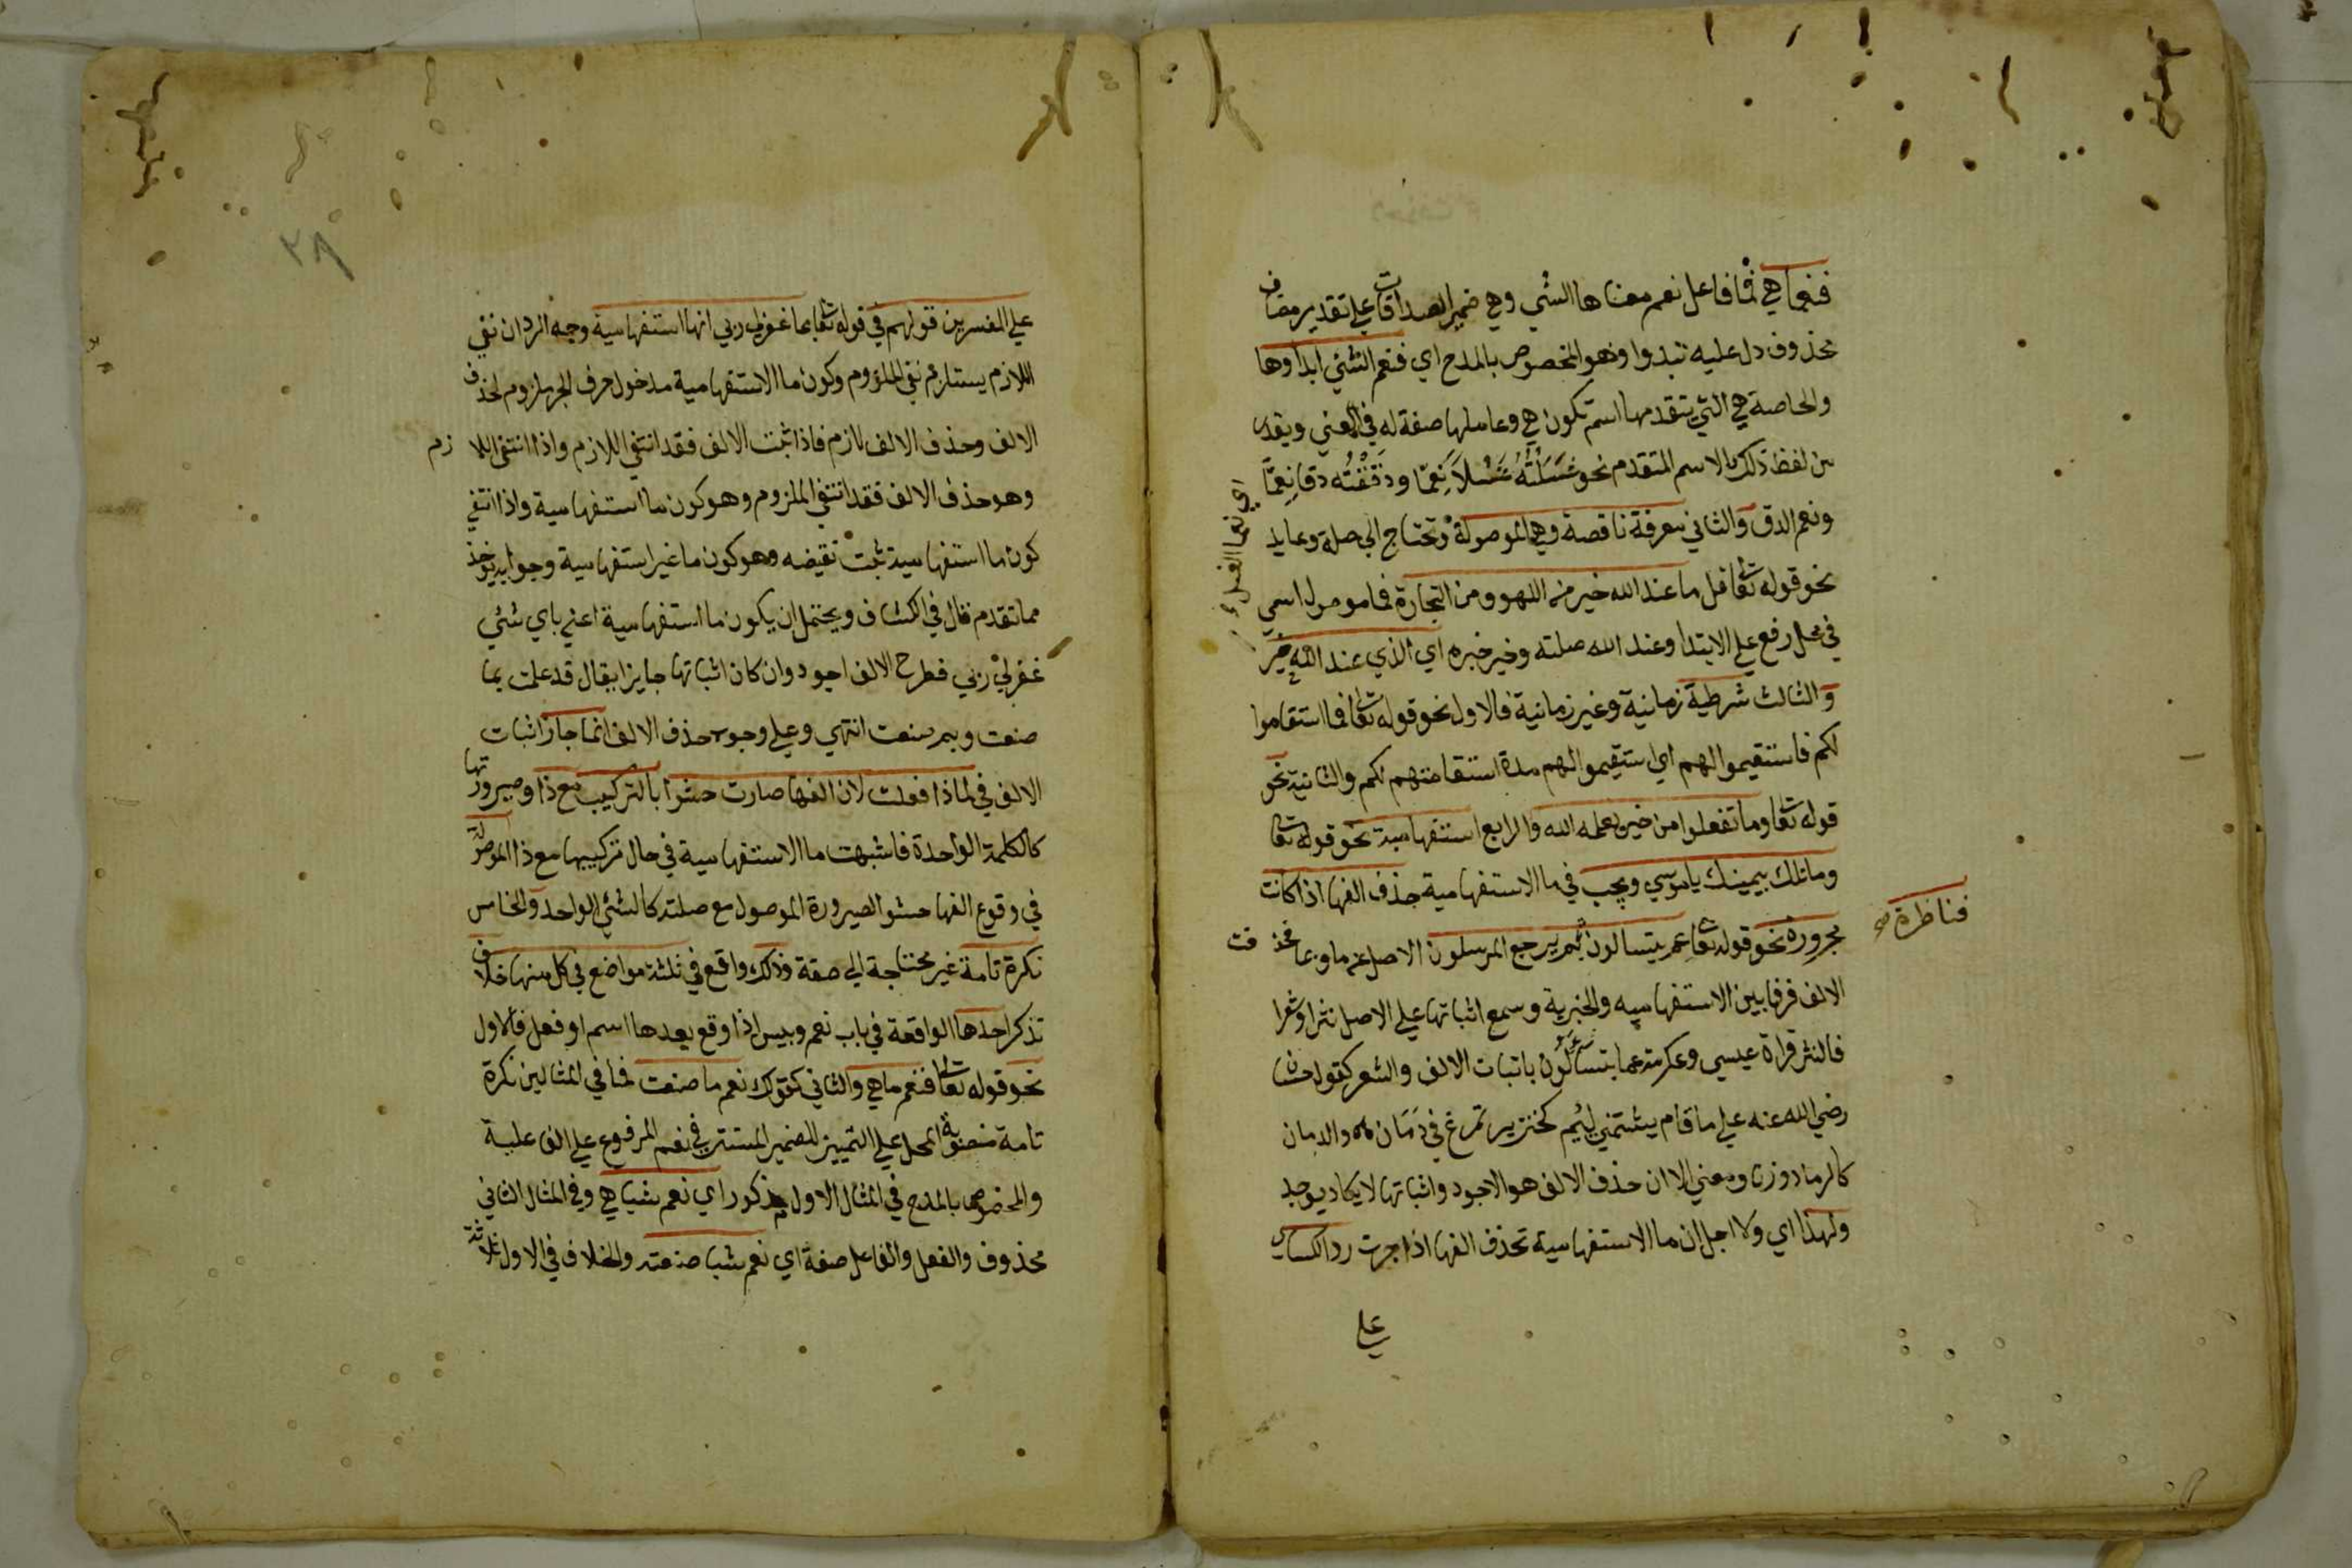 فنعما هي فما فاعل نعم معناها الشي وهي ضمير الصدقات على تقدير مضاف
محذوف دل عليه تبدوا وهو المخصوص بالمدح اي فنعم الشئي ابداوها
والخاصة هي التي يتقدمها اسم تكون هي وعاملها صفة له في المعني ويقدر
من لفظ ذلك الاسم المتقدم نحو غَسَلْتُهُ غَسْلاً نِعِمّا ودَقَقْتُه دقا نِعِمَّا
اي نعم الغسل
ونعم الدق والثاني معرفة ناقصة وهي الموصولة وتحتاج الى صلة وعايد
نحو قوله تعا قل ما عند الله خير من اللهو ومن التجارة فما موصول اسمي
في محل رفع علي الابتدا وعند الله صلته وخير خبره اي الذي عند الله خير
والثالث شرطية زمانية وغير زمانية فالاول نحو قوله تعا فما استقاموا
لكم فاستقيموا لهم اي استقيموا لهم مدة استقامتهم لكم والثانية نحو
قوله تعا وما تفعلوا من خير يعلمه الله والرابع استفهامية نحو قوله تعا
وما تلك بيمينك ياموسي ويجب في ما الاستفهامية حذف الفها اذا كانت
فناظرة صح
مجرورة نحو قوله تعا عم يتسالون بم يرجع المرسلون الاصل عن ما وبما فحذفت
الالف فرقا بين الاستفهاميه والخبرية وسمع اثباتها علي الاصل نثرا وشعرا
فالنثر قراة عيسي وعكرمة عما يتسألون باثبات الالف والشعر كقول حسان
رضي الله عنه علي ما قام يشتمني لئيم كخنزير تمرغ في دَمَان والدمان
كالرماد وزنا ومعني الا ان حذف الالف هو الاجود واثباتها لا يكاد يوجد
ولهذا اي ولاجل ان ما الاستفهامية تحذف الفها اذا جرت رد الكساي
علي
٣٨
علي المفسرين قولهم في قوله تعا بما غفرلي ربي انها استفهامية وجه الرد ان نفي
اللازم يستلزم نفي الملزوم وكون ما الاستفهامية مدخول حرف الجر ملزوم لحذف
الالف وحذف الالف لازم فاذا ثبت الالف فقد انتفي اللازم واذا انتفي اللازم
وهو حذف الالف فقد انتفي الملزوم وهو كون ما استفهامية واذا انتفي
كون ما استفهامية ثبت نقيضه وهو كون ما غير استفهامية وجوابه يؤخذ
مما تقدم قال في الكشاف ويحتمل ان يكون ما استفهامية اعني باي شئي
غفرلي ربي فطرح الالف اجود وان كان اثباتها جايزا يقال قد علمت بما
صنعت وبم صنعت انتهي وعلي وجوب حذف الالف انما جاز اثبات
الالف في لماذا فعلت لان الفها صارت حشوا بالتركيب مع ذا وصيرورتها
كالكلمة الواحدة فاشبهت ما الاستفهامية في حال تركيبها مع ذا الموصولة
في وقوع الفها حشوا لصيرورة الموصول مع صلته كالشئي الواحد والخامس
نكرة تامة غير محتاجة الي صفة وذلك واقع في ثلثة مواضع في كل منها خلاف
تذكر احدها الواقعة في باب نعم وبيس اذا وقع بعدها اسم او فعل فالاول
نحو قوله تعا فنعم ما هي والثاني كقولك نعم ما صنعت فما في المثالين نكرة
تامة منصوبة المحل علي التمييز للضمير المستتر في نعم المرفوع علي الفاعلية
والمخصوص بالمدح في المثال الاول مذكور اي نعم شيا هي وفي المثال الثاني
محذوف والفعل والفاعل صفة اي نعم شيا صنعته والخلاف في الاول ثلاثة